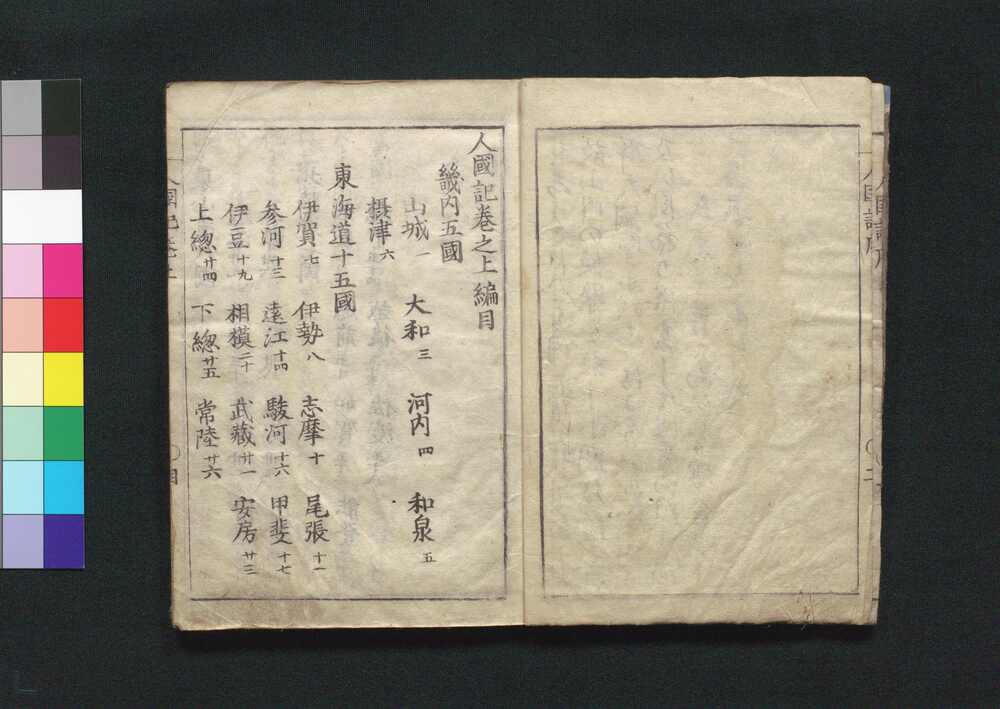 人國記巻之上編目
畿内五國
山城 一 大和 三 河内 四 和泉 五
摂津 六
東海道十五國
伊賀 七 伊勢 八 志摩 十 尾張 十一
参河 十三 遠江 十四 駿河 十六 甲斐 十七
伊豆 十九 相模 二十 武蔵 廿一 安房 廿三
上總 廿四 下總 廿五 常陸 廿六